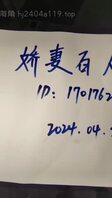 hj2404a119.top
娇妻百
ID: 170176
2024.04.